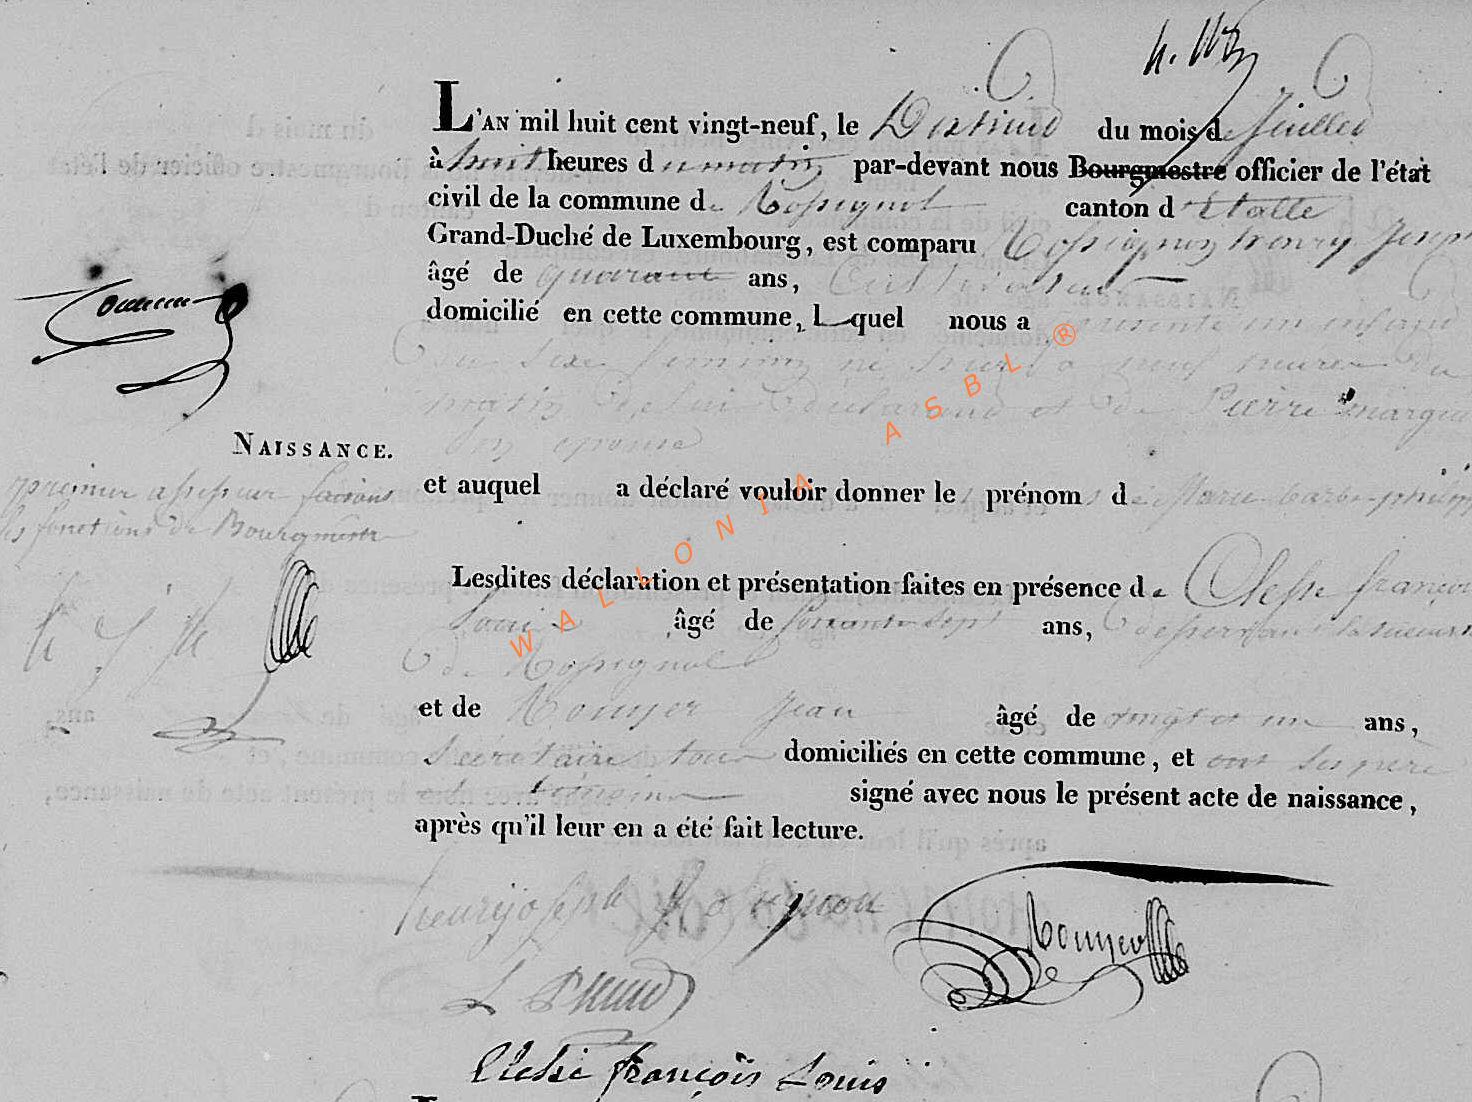 L'AN mil huit cent vingt-neuf, le Dixhuit du mois de Juillet
à huit heures du matin par-devant nous Bourgmestre officier de l'état
civil de la commune de Rossignol canton d'Etalle
Grand-Duché de Luxembourg, est comparu Rossignon henry Joseph
âgé de quarante ans, Cultivateur
domicilié en cette commune, Lequel nous a présenté un enfant
du sexe feminin né hier à neuf heures du
matin de lui déclarant et de Pierre margue
son epouse
NAISSANCE.
et auquel a déclaré vouloir donner les prénoms de Marie barbe
premier assesseur faisant
les fonctions de Bourgmestre
Lesdites déclaration et présentation faites en présence de françois
Louis âgé de soixante sept ans, desservant
de Rossignol
et de Rouyer Jean âgé de vingt et un ans,
secretaire tous domiciliés en cette commune, et ont les père
et témoins signé avec nous le présent acte de naissance,
après qu'il leur en a été fait lecture.
henry joseph Rossignon
Rouyer
françois Louis
WALLONIA ASBL ®